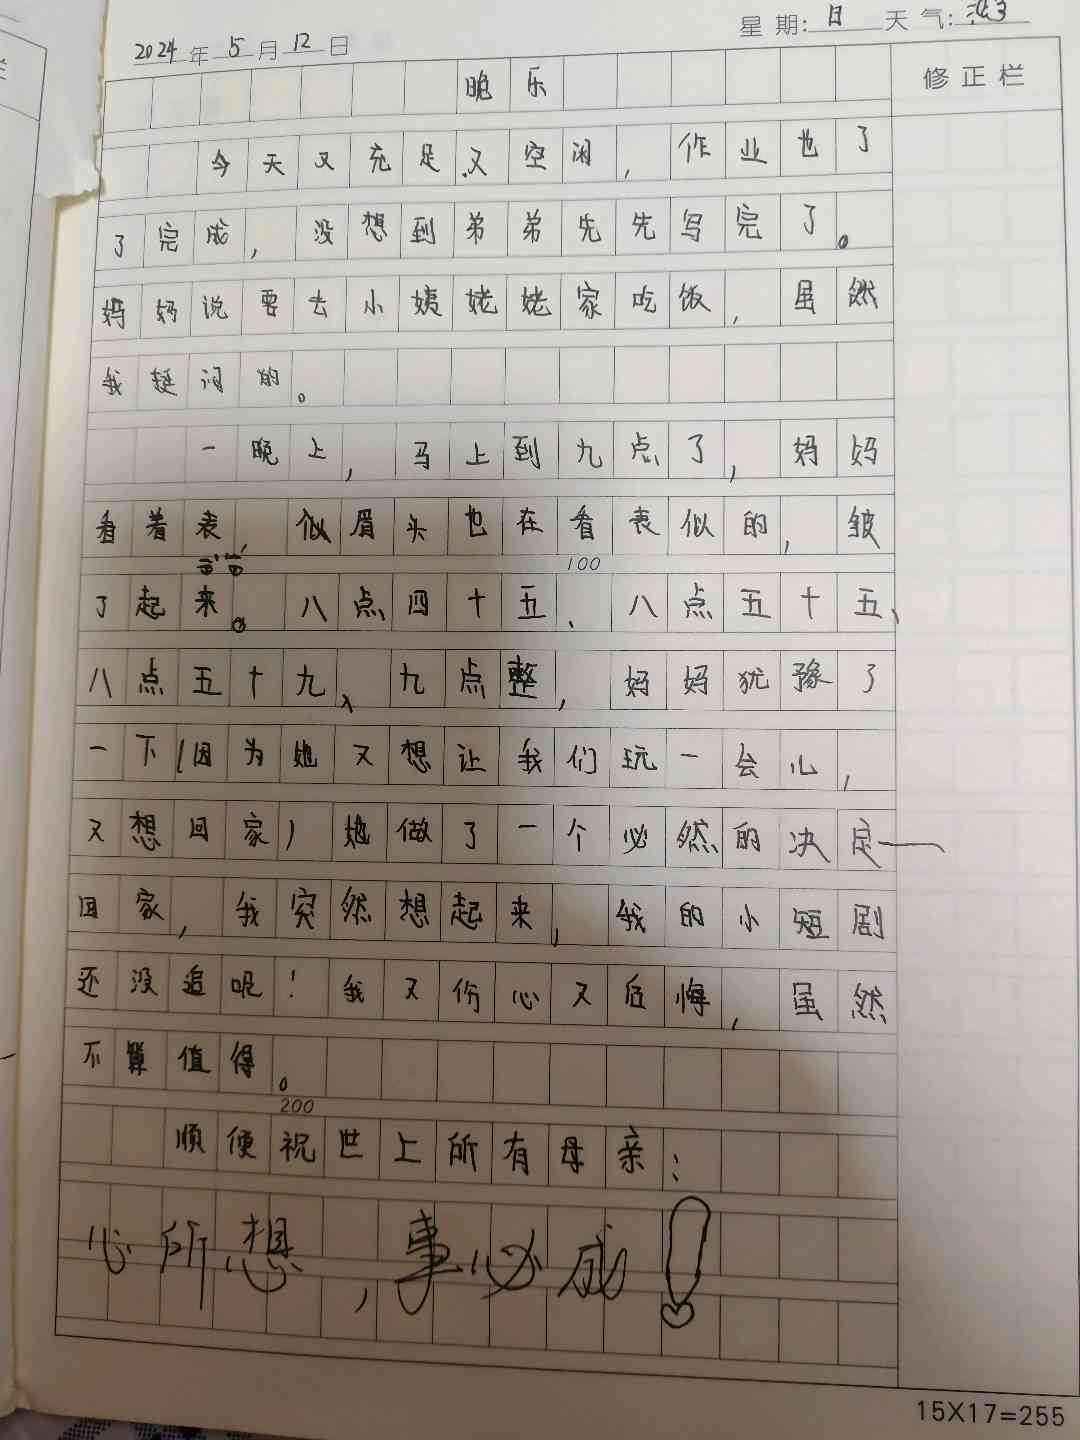 2024年5月12日 星期:日 天气:
晚乐
修正栏
今天又充足又空闲,作业也了
了完成,没想到弟弟先先写完了。
妈妈说要去小姨姥姥家吃饭,虽然
我挺闲的。
一晚上,马上到九点了,妈妈
看着表,似眉头也在看表似的,皱
100
了起来。八点四十五、八点五十五、
八点五十九、九点整,妈妈犹豫了
一下(因为她又想让我们玩一会儿,
又想回家)她做了一个必然的决定—
回家,我突然想起来,我的小短剧
还没追呢!我又伤心又后悔,虽然
不算值得。
200
顺便祝世上所有母亲:
心所想,事必成!
15X17=255